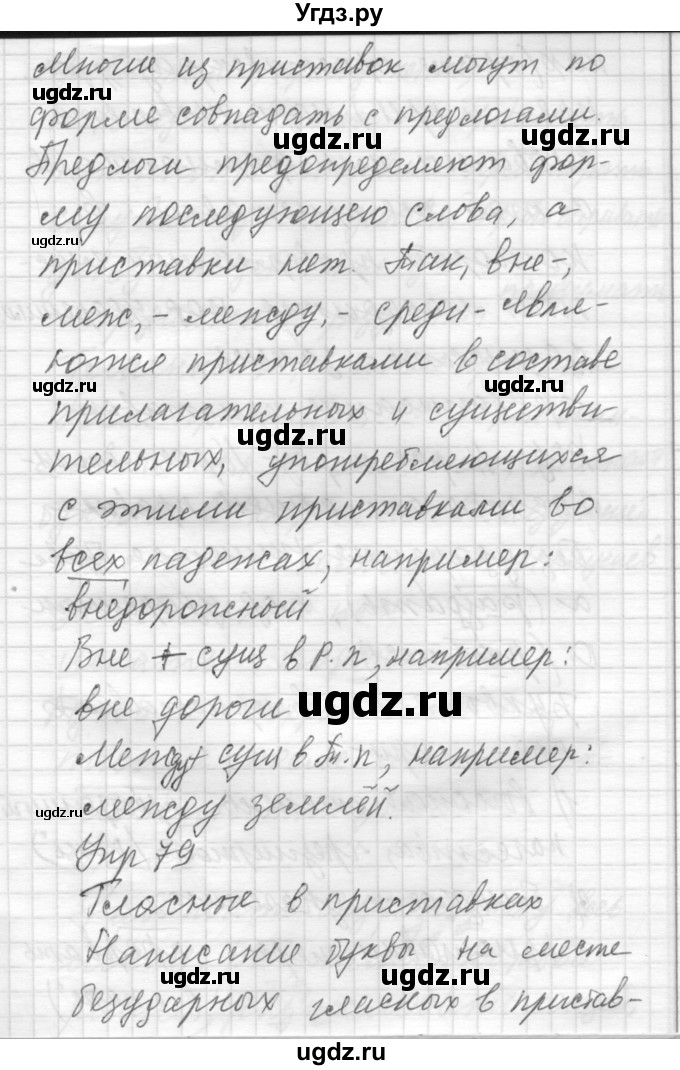 Угдз.ру
Многие из приставок могут по
ugdz.ru
форме совпадать с предлогами.
ugdz.ru ugdz.ru
Предлоги предопределяют фор-
му последующего слова, а
ugdz.ru
приставки нет. Так, вне-,
меж,- между,- среди- явля-
ются приставками в составе
ugdz.ru ugdz.ru
прилагательных и существи
ugdz.ru
тельных, употребляющихся
с этими приставками во
всех падежах, например:
внедорожный
Вне + сущ в Р.п, например:
вне дороги
ugdz.ru
Между + сущ в Тв.п, например:
между землёй.
ugdz.ru
Упр 79
Гласные в приставках
Написание буквы на месте
ugdz.ru ugdz.ru
безударных гласных в пристав-
ugdz.ru